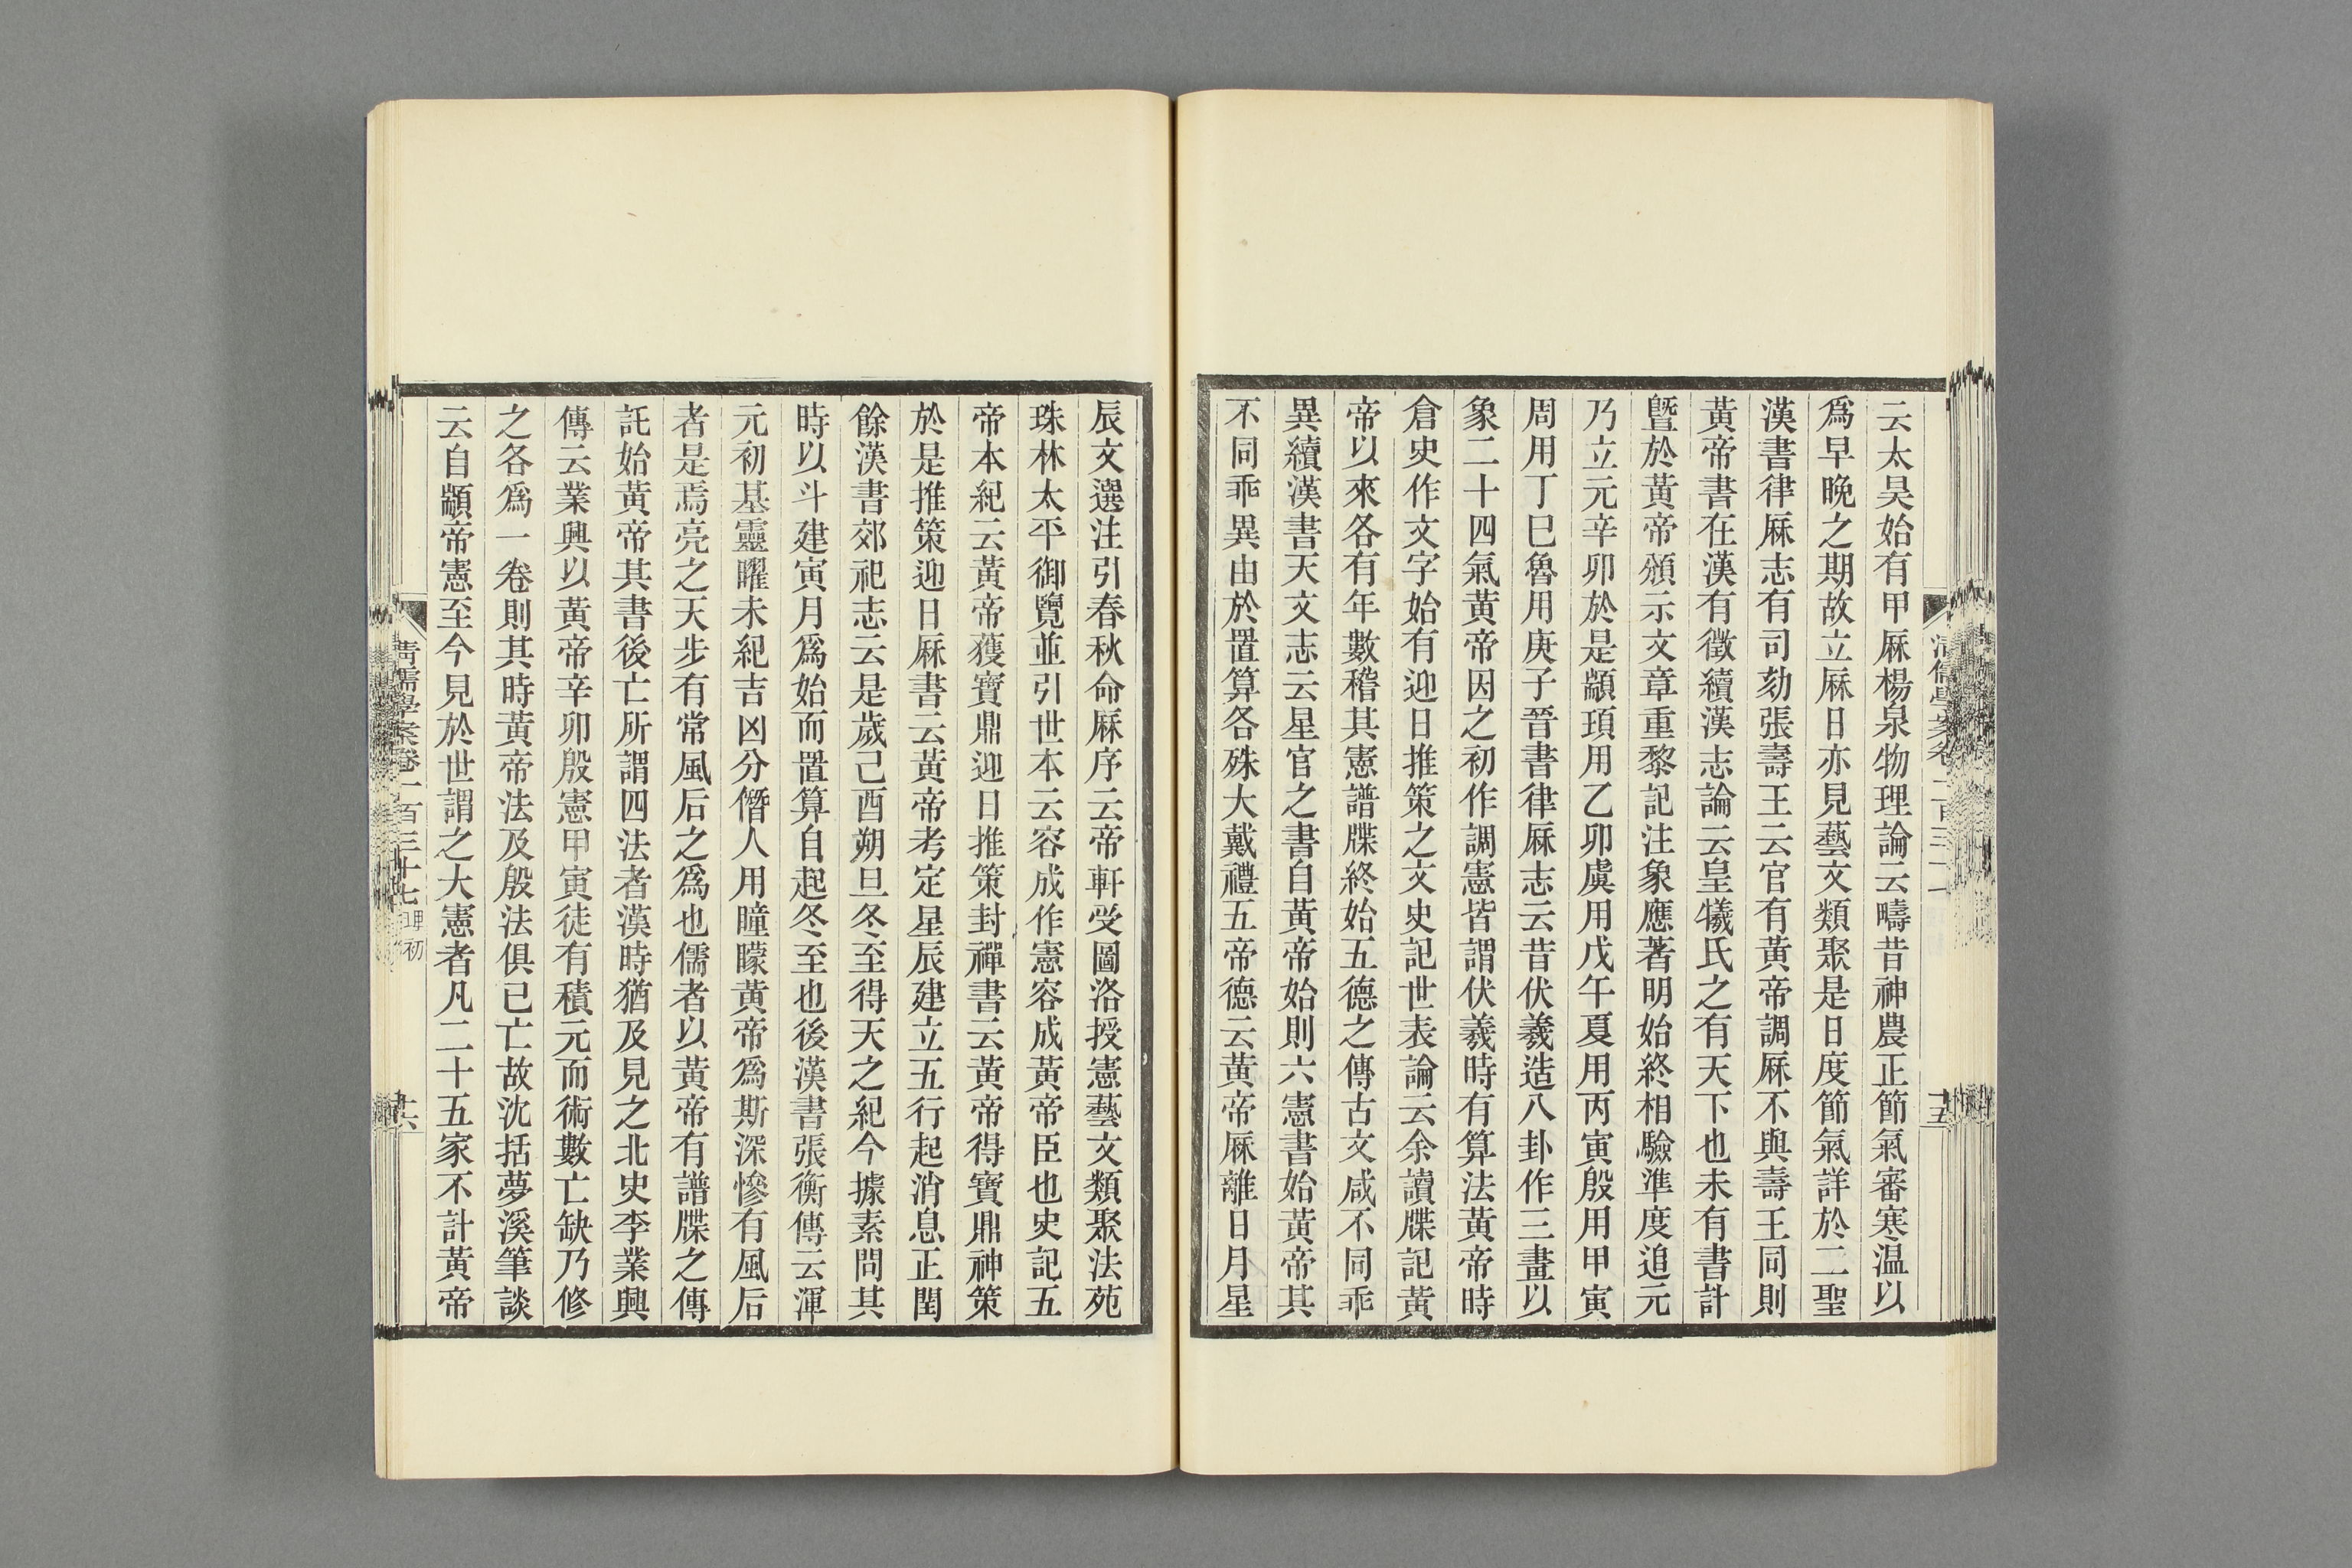 云太昊始有甲厤楊泉物理論云疇昔神農正節氣審寒温以
爲早晚之期故立厤日亦見藝文類聚是日度節氣詳於二聖
漢書律厤志有司劾張壽王云官有黃帝調厤不與壽王同則
黃帝書在漢有徵續漢志論云皇犧氏之有天下也未有書計
曁於黃帝頒示文章重黎記注象應著明始終相驗準度追元
乃立元辛卯於是顓頊用乙卯虞用戊午夏用丙寅殷用甲寅
周用丁巳魯用庚子晉書律厤志云昔伏羲造八卦作三畫以
象二十四氣黃帝因之初作調憲皆謂伏羲時有算法黃帝時
倉史作文字始有迎日推策之文史記世表論云余讀牒記黃
帝以來各有年數稽其憲譜牒終始五德之傳古文咸不同乖
異續漢書天文志云星官之書自黃帝始則六憲書始黃帝其
不同乖異由於置算各殊大戴禮五帝德云黃帝厤離日月星
十五
辰文選注引春秋命厤序云帝軒受圖洛授憲藝文類聚法苑
珠林太平御覽並引世本云容成作憲容成黃帝臣也史記五
帝本紀云黃帝獲寶鼎迎日推策封禪書云黃帝得寶鼎神策
於是推策迎日厤書云黃帝考定星辰建立五行起消息正閏
餘漢書郊祀志云是歲己酉朔旦冬至得天之紀今據素問其
時以斗建寅月爲始而置算自起冬至也後漢書張衡傳云渾
元初基靈曜未紀吉凶分僭人用瞳矇黃帝爲斯深慘有風后
者是焉亮之天步有常風后之爲也儒者以黃帝有譜牒之傳
託始黃帝其書後亡所謂四法者漢時猶及見之北史李業興
傳云業興以黃帝辛卯殷憲甲寅徒有積元而術數亡缺乃修
之各爲一卷則其時黃帝法及殷法俱已亡故沈括夢溪筆談
云自顓帝憲至今見於世謂之大憲者凡二十五家不計黃帝
清儒學案卷一百三十七 理初
十六